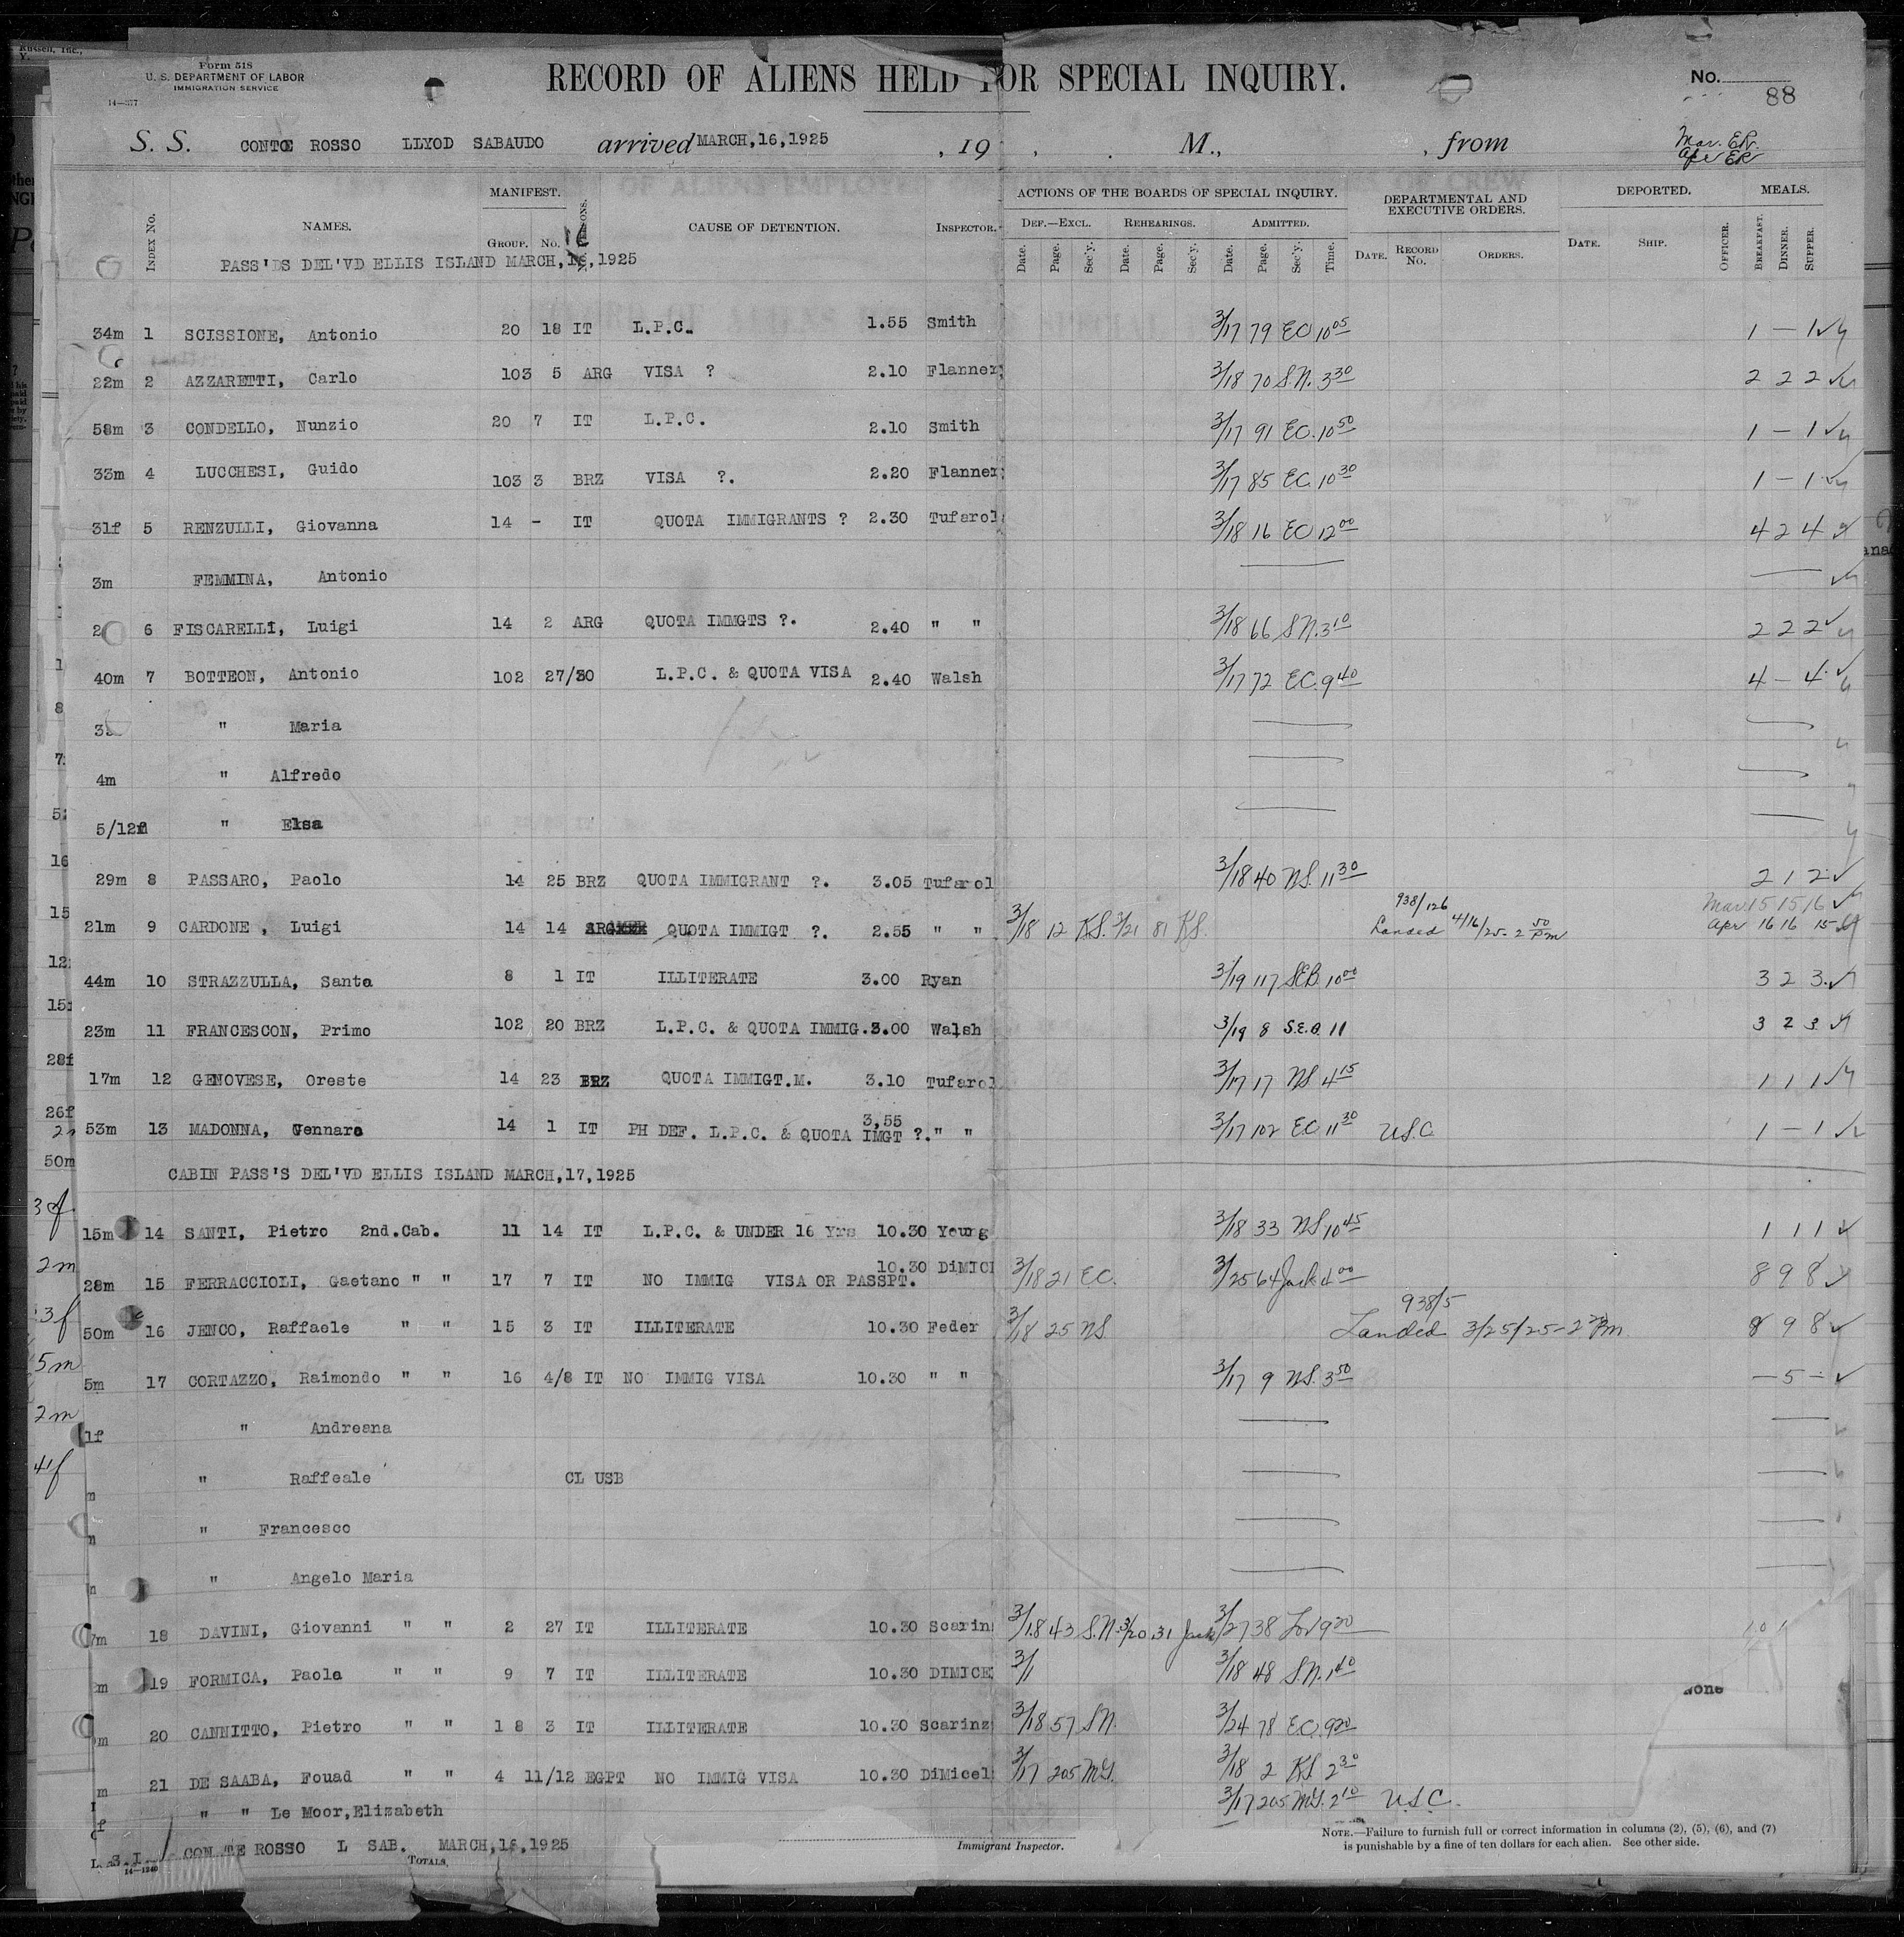 Russell, Inc.,
Y.
Form 518
U. S. DEPARTMENT OF LABOR
IMMIGRATION SERVICE
14—377
RECORD OF ALIENS HELD FOR SPECIAL INQUIRY.
No.
88
S. S. CONTE ROSSO LLYOD SABAUDO arrived MARCH,16,1925 , 19 , . M., , from
Mar. ER.
Apr ER
INDEX NO. NAMES. MANIFEST. GROUP. NO. CAUSE OF DETENTION. INSPECTOR. ACTIONS OF THE BOARDS OF SPECIAL INQUIRY. DEF.—EXCL. REHEARINGS. ADMITTED. DEPARTMENTAL AND EXECUTIVE ORDERS. DEPORTED. MEALS.
Date. Page. Sec'y. Date. Page. Sec'y. Date. Page. Sec'y. Time. DATE. RECORD NO. ORDERS. DATE. SHIP. OFFICER. BREAKFAST. DINNER. SUPPER.
PASS'DS DEL'VD ELLIS ISLAND MARCH,16,1925
34m 1 SCISSIONE, Antonio 20 18 IT L.P.C. 1.55 Smith 3/17 79 EC 10 05 1 — 1
22m 2 AZZARETTI, Carlo 103 5 ARG VISA ? 2.10 Flanner 3/18 70 S.N. 3 30 2 2 2
58m 3 CONDELLO, Nunzio 20 7 IT L.P.C. 2.10 Smith 3/17 91 EC. 10 50 1 — 1
33m 4 LUCCHESI, Guido 103 3 BRZ VISA ?. 2.20 Flanner 3/17 85 EC. 10 30 1 — 1
31f 5 RENZULLI, Giovanna 14 - IT QUOTA IMMIGRANTS ? 2.30 Tufarol 3/18 16 EC 12 00 4 2 4
3m FEMMINA, Antonio
2 6 FISCARELLI, Luigi 14 2 ARG QUOTA IMMGTS ?. 2.40 " " 3/18 66 S.N. 3 10 2 2 2
40m 7 BOTTEON, Antonio 102 27/30 L.P.C. & QUOTA VISA 2.40 Walsh 3/17 72 EC. 9 40 4 — 4
3 " Maria
4m " Alfredo
5/12 " Elsa
29m 8 PASSARO, Paolo 14 25 BRZ QUOTA IMMIGRANT ?. 3.05 Tufarol 3/18 40 NS. 11 30 2 1 2
938/126 Mar. 15 15 16
21m 9 CARDONE , Luigi 14 14 ARG QUOTA IMMIGT ?. 2.55 " " 3/18 12 KS. 3/21 81 KS. Landed 4/16/25 - 2 50 Pm Apr 16 16 15
44m 10 STRAZZULLA, Santa 8 1 IT ILLITERATE 3.00 Ryan 3/19 117 SEB. 10 00 3 2 3
23m 11 FRANCESCON, Primo 102 20 BRZ L.P.C. & QUOTA IMMIG. 3.00 Walsh 3/19 8 S.E.B. 11 3 2 3
17m 12 GENOVESE, Oreste 14 23 BRZ QUOTA IMMIGT.M. 3.10 Tufarol 3/17 17 NS 4 15 1 1 1
53m 13 MADONNA, Gennaro 14 1 IT PH DEF. L.P.C. & QUOTA IMGT ?. 3,55 " " 3/17 102 EC 11 30 USC 1 — 1
CABIN PASS'S DEL'VD ELLIS ISLAND MARCH,17,1925
15m 14 SANTI, Pietro 2nd.Cab. 11 14 IT L.P.C. & UNDER 16 Yrs 10.30 Young 3/18 33 NS 10 45 1 1 1
28m 15 FERRACCIOLI, Gaetano " " 17 7 IT NO IMMIG VISA OR PASSPT. 10.30 DiMICE 3/18 21 EC. 3/25 64 Jack 4 00 8 9 8
938/5
50m 16 JENCO, Raffaele " " 15 3 IT ILLITERATE 10.30 Feder 3/18 25 NS Landed 3/25/25 - 2 Pm 8 9 8
5m 17 CORTAZZO, Raimondo " " 16 4/8 IT NO IMMIG VISA 10.30 " " 3/17 9 NS. 3 50 — 5 —
1f " Andreana
" Raffeale CL USB
" Francesco
" Angelo Maria
7m 18 DAVINI, Giovanni " " 2 27 IT ILLITERATE 10.30 Scarin 3/18 43 S.N. 3/20 31 Jack 3/27 38 9 20
m 19 FORMICA, Paola " " 9 7 IT ILLITERATE 10.30 DIMICE 3/1 3/18 48 S.N. 1 40
m 20 CANNITTO, Pietro " " 1 8 3 IT ILLITERATE 10.30 Scarinz 3/18 57 SN. 3/24 78 EC. 9 20
m 21 DE SAABA, Fouad " " 4 11/12 EGPT NO IMMIG VISA 10.30 DiMicel 3/17 205 MG. 3/18 2 KS 2 30
f " " Le Moor,Elizabeth 3/17 205 MG. 2 10 U.S.C.
S.I. CONTE ROSSO L SAB. MARCH,16,1925
14—1240
TOTALS
Immigrant Inspector.
NOTE.—Failure to furnish full or correct information in columns (2), (5), (6), and (7)
is punishable by a fine of ten dollars for each alien. See other side.